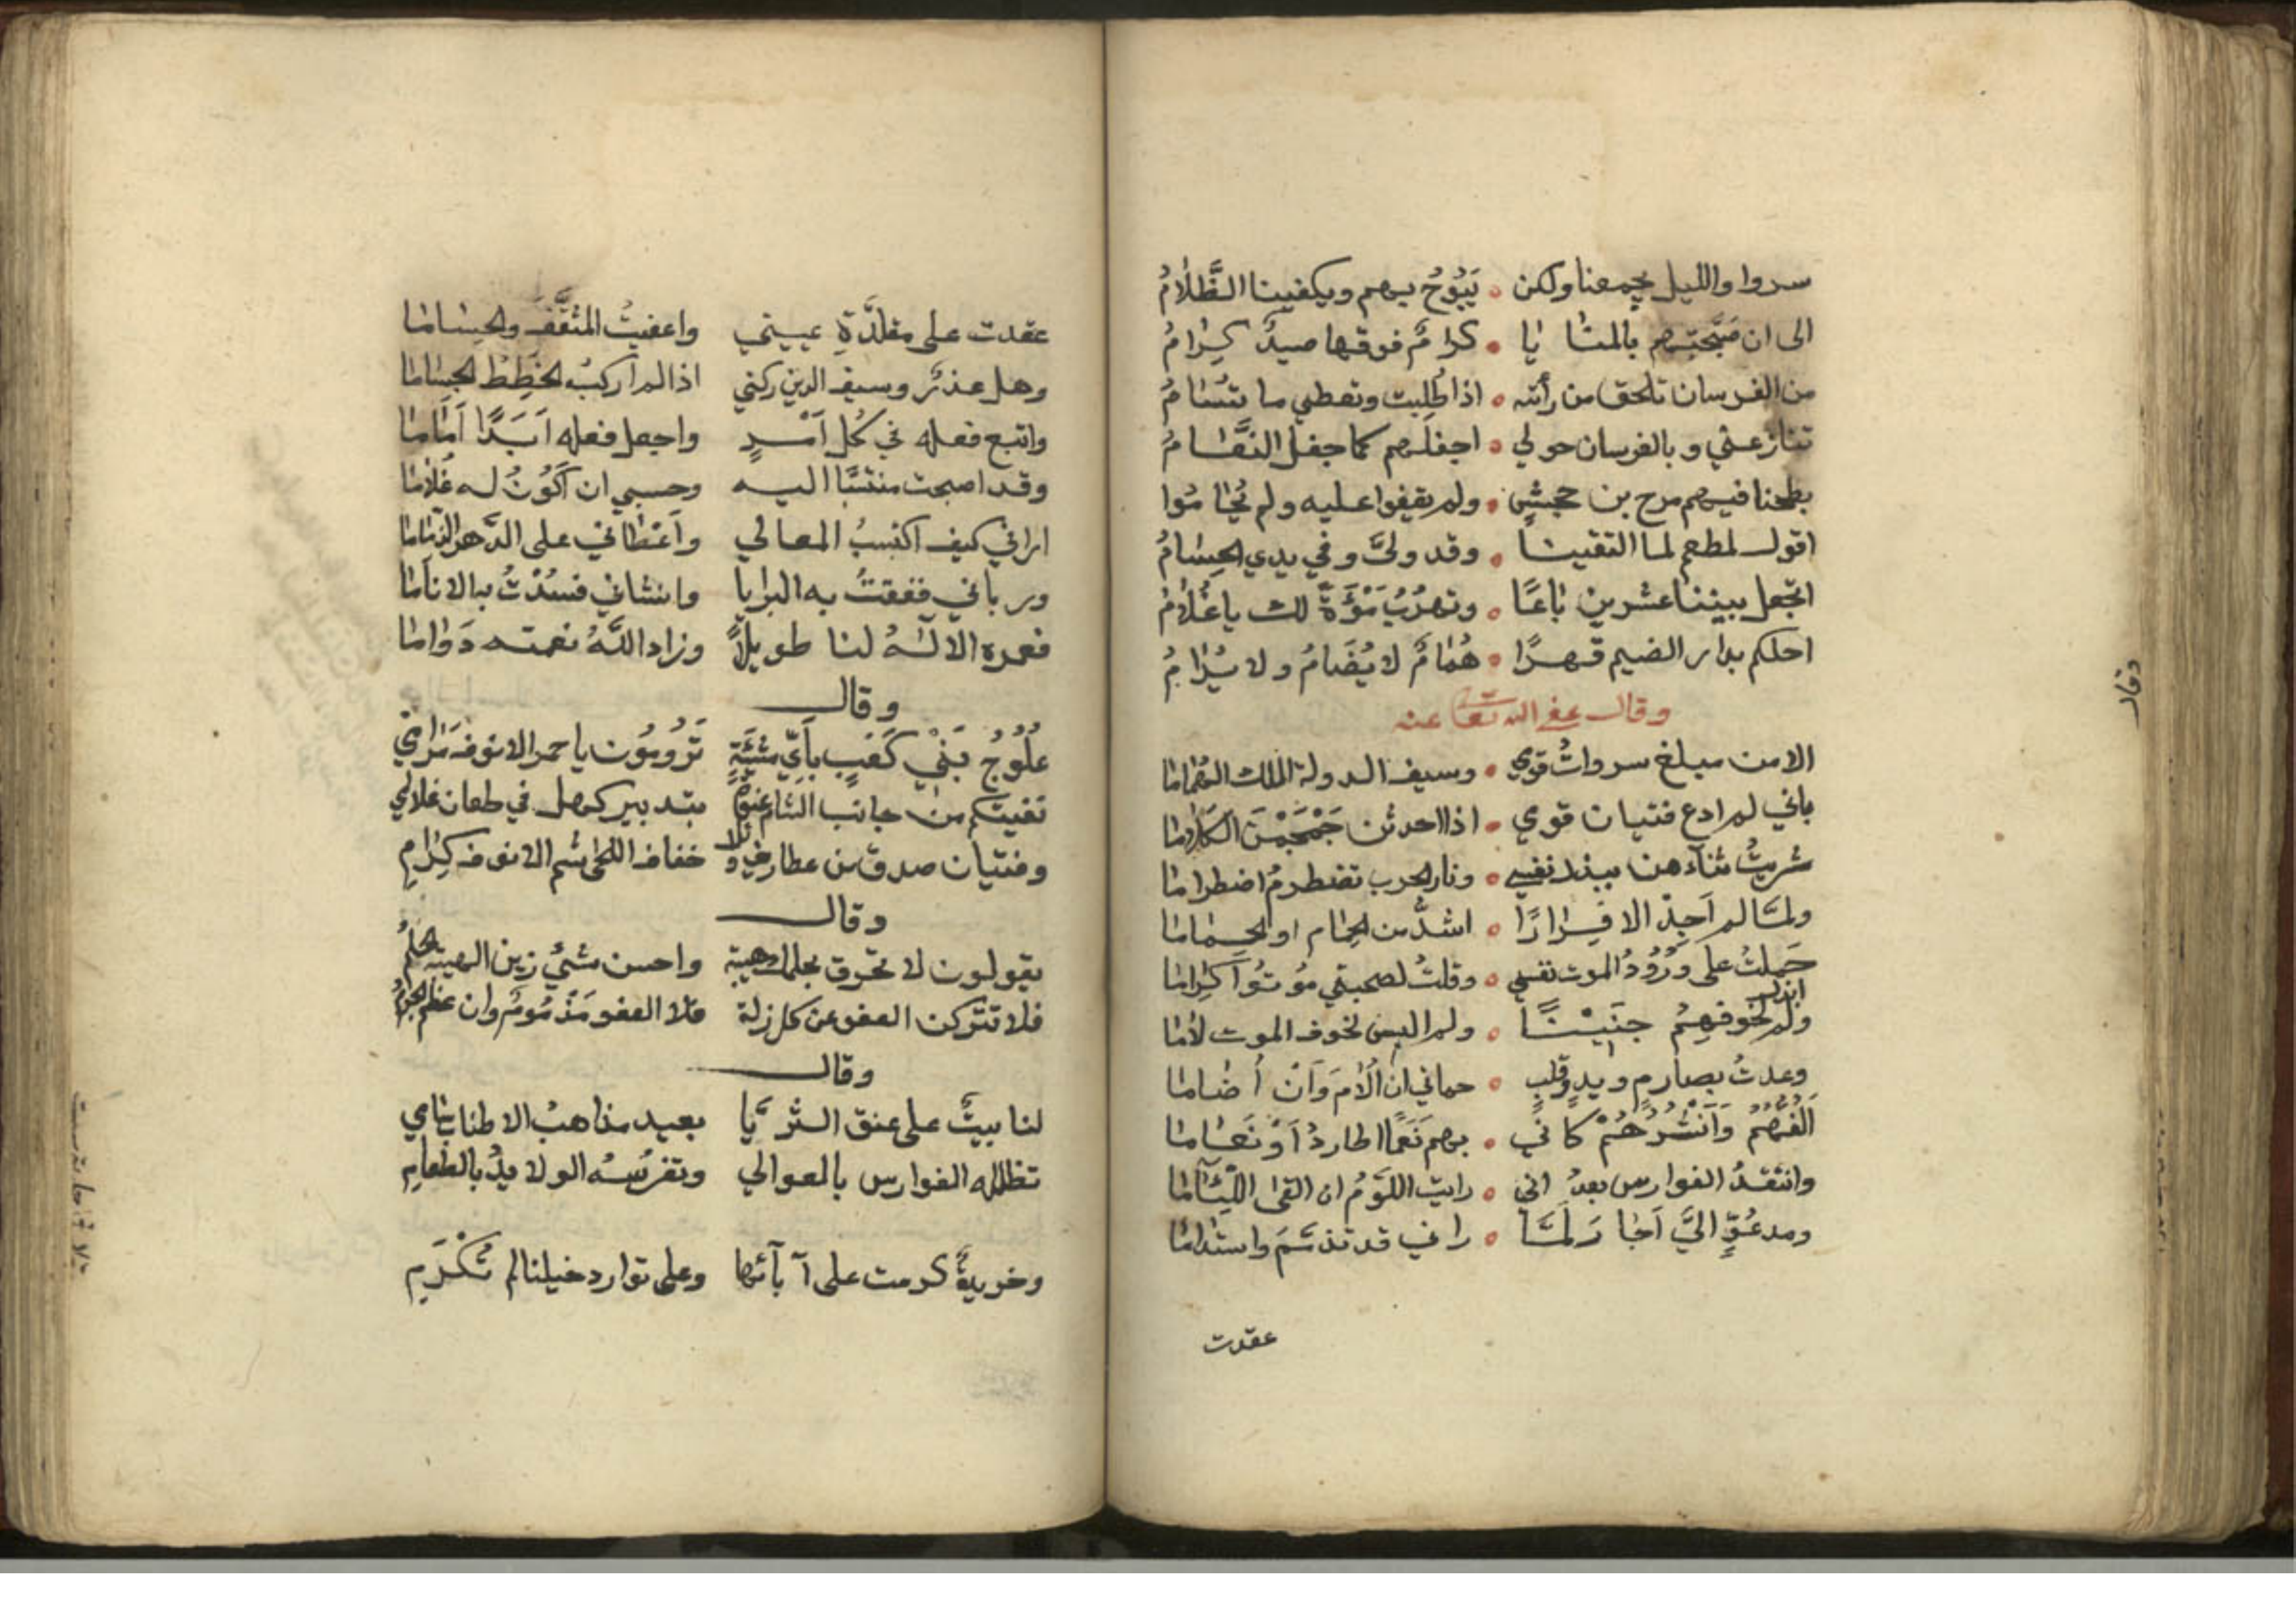 سروا والليل يجمعنا ولكن • يَبُوحُ بهم ويكفينا الظَّلَامُ
الى ان صَبَّحتهم بالمنايا • كرامٌ فوقها صيدٌ كِرامُ
من الفرسان تلحق من رأته • اذا طُلبت وتعطي ما تُسَامُ
تنازعني وبالفرسان حولي • اجفلهم كما جفل النَّعَامُ
بطحنا فيهم مرح بن جحشٍ • ولم يقفوا عليه ولم يُحَامُوا
اقول لمطعم لما التقينا • وقد ولىَّ وفي يدي الحسَامُ
اتجعل بيننا عشرين بَاعًا • وتهرُبُ سَوْءَةً لك يا غُلَامُ
احلكم بدار الضيم قهرًا • هُمَامٌ لا يُضَامُ ولا يُرَامُ
وقال عفى الله تعا عنه
الا من مبلغ سروات قومي • وسيف الدولة الملك الهُمَاما
باني لم ادع فتيان قومي • اذا احدثن جَمْجَمْنَ الكَلَاما
شريتُ ثنآءهن ببذل نفسي • ونار الحرب تضطرمُ اضطراما
ولمَّا لم اَجِدْ الا فِرَارًا • اشدُّ من الحِمام او الحِمَاما
حَمَلتُ على وُرُودُ الموت نفسي • وقلتُ لصحبتي مُوتُوا كِرَاما
ولم ابذل لخوفهِمُ جنَيْنًا • ولم البس لخوف الموت لَاما
وعدتُ بصارمٍ ويدٍ وقلبٍ • حماني ان اُلَامَ وَاَنْ اُضَاما
اَلُفُّهُمُ وَاَنْشُرُهُمْ كاني • بهم نَعَمًا اطاردُ اَوْ نَعَاما
وانتقدُ الفوارس بعدُ اني • رايت اللَّوْمُ ان القى اللِّئَاما
ومدعُوٍّ اليَّ اَجَارَ لمَّا • راني قد تذمَّمَ واستَلَاما
عقدت
عقدت على مقلَّدَةِ عييتي واعفيتُ المثقَّفَ والحِسَاما
وهل عذرٌ وسيف الدين ركني اذا لم اركبُ الخِطَطَ الجِسَاما
واتبع فعله في كُل اَمْرٍ واجعل فعله اَبَدًا اَمَاما
وقد اصبحت منتسَبًا اليه وحسبي ان اَكُوُنُ له غُلَاما
اراني كيف اكتسبُ المعالي وَاَعْطاني على الدَّهر الذِّمَاما
ورباني ففقتُ به البرايا وانشاني فسُدْتُ به الانَاما
فعمره الالَهُ لنا طويلًا وزاد اللَّهُ نعمته دَوَاما
وقال
عُلُوجُ بَنْي كَعْبٍ بأَيِّ مَشِيَّةٍ تَرُومُونَ يا حمر الانوف مَرَامي
نفيتكم من جانب الشام عنوةً بتدبير كهل في طعان غلامي
وفتيان صدق من غطاريف وائل خفاف اللحى شم الانوف كِرَامِ
وقال
يقولون لا تخرق بحلمك هيبة واحسن شيءٍ زين الهيبة الحلمُ
فلا تتركن العفو عن كل زلة فلا العفو مَذْمُومٌ وان عظم الجُرمُ
وقال
لنا بيتٌ على عنق الثريَّا بعيد مذاهبُ الاطناب سَامي
تظلله الفوارس بالعوالي وتفرشُه الولايدُ بالطعامِ
وخريدةٌ كرمت على آبآئها وعلى توارد خيلنا لم تُكْرَمِ